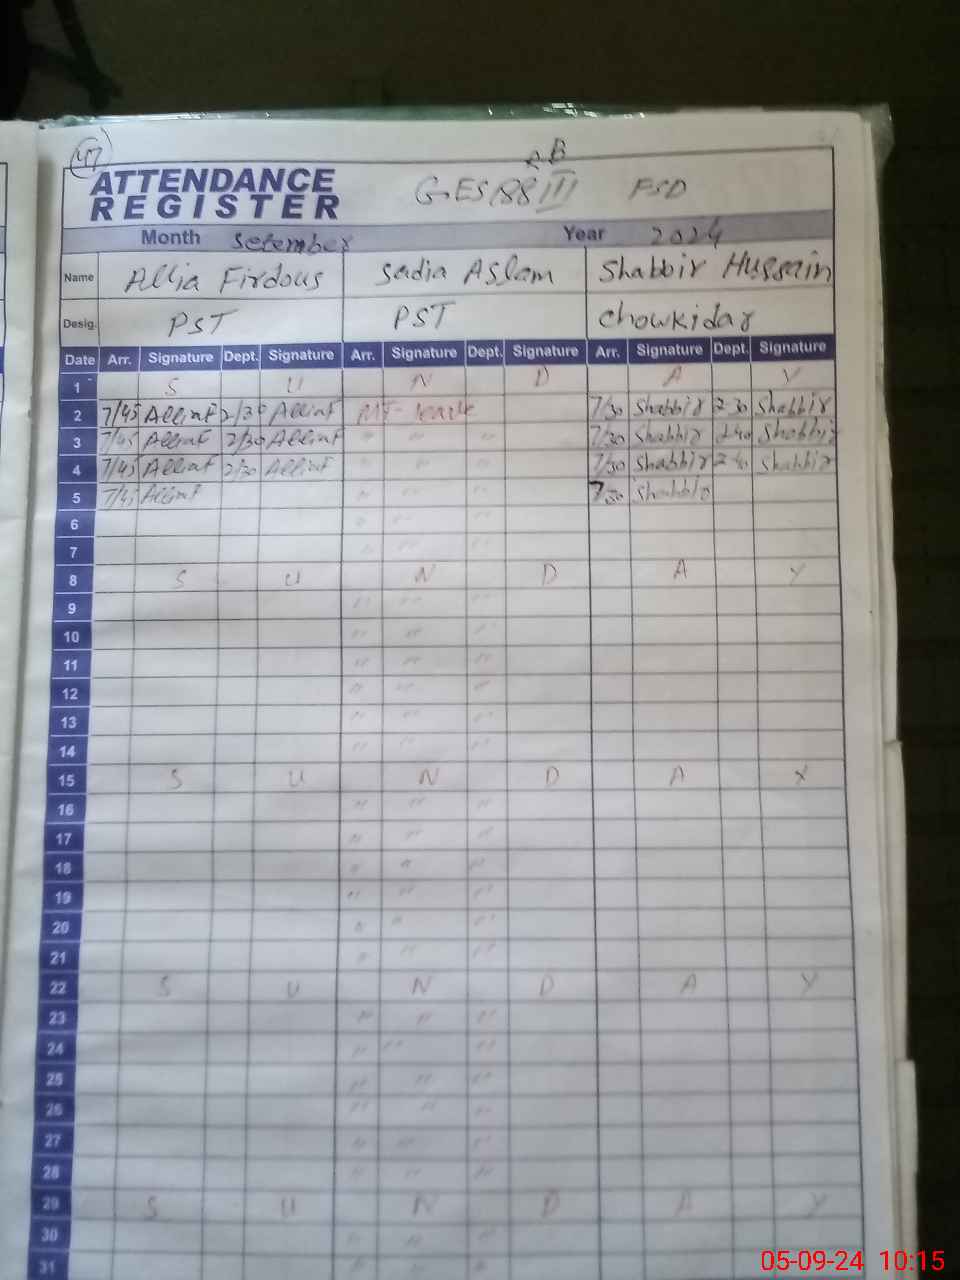 47
ATTENDANCE
REGISTER
B
GES 188 III FSD
Month Setember Year 2024
Name Allia Firdous Sadia Aslam Shabbir Hussain
Desig. PST PST Chowkidar
Date Arr. Signature Dept. Signature Arr. Signature Dept. Signature Arr. Signature Dept. Signature
1 S U N D A Y
2 7/45 2/30 MT- leave 7/30 Shabbir 2-30 Shabbir
3 7/45 2/30 " " " 7/30 Shabbir 2-40 Shabbir
4 7/45 2/30 " " " 7/30 Shabbir Shabbir
5 7/45 " " " 7/30
6 " " "
7 " " "
8 S U N D A Y
9 " " "
10 " " "
11 " " "
12 " " "
13 " " "
14 " " "
15 S U N D A Y
16 " " "
17 " " "
18 " " "
19 " " "
20 " " "
21 " " "
22 S U N D A Y
23 " " "
24 " " "
25 " " "
26 " " "
27 " " "
28 " " "
29 S U N D A Y
30 " " "
31 " " "
05-09-24 10:15